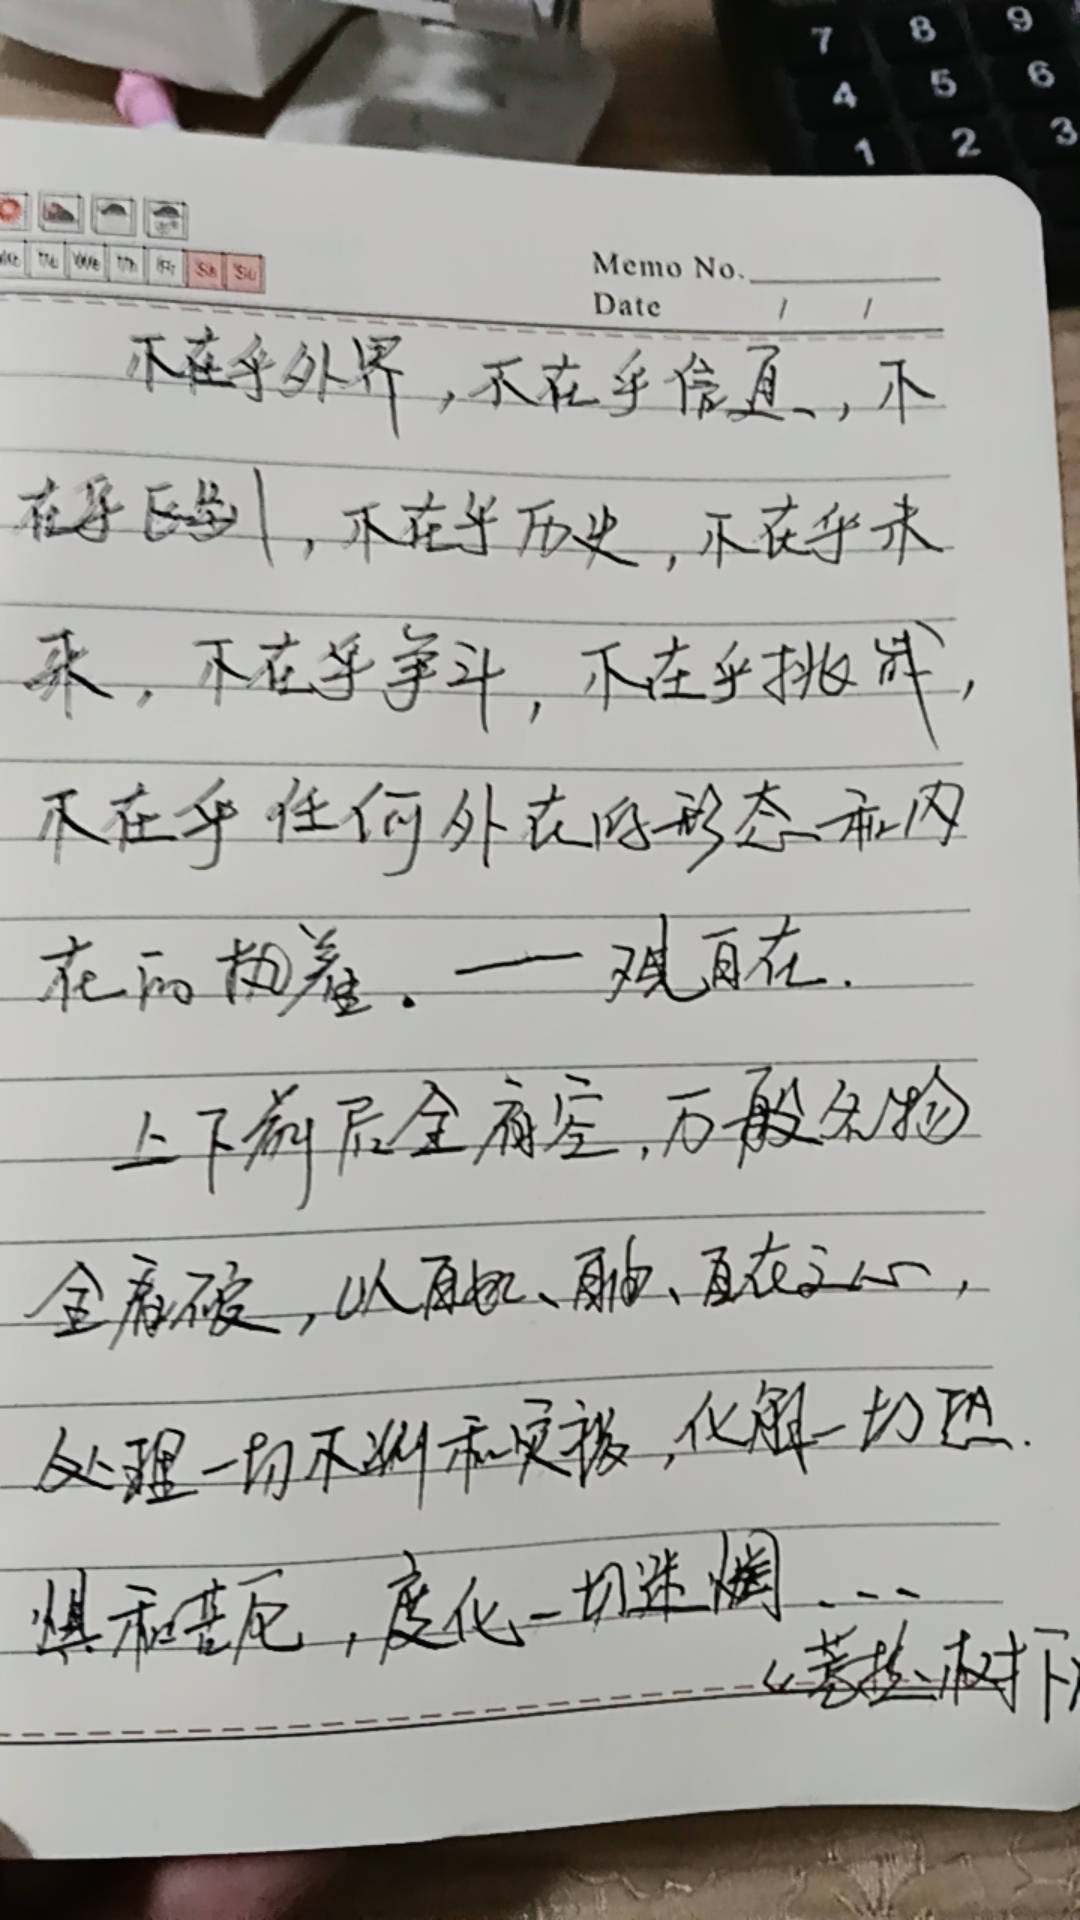 7 8 9
4 5 6
1 2 3
Tu We Th Fr Sa Su
Memo No.
Date / /
不在乎外界,不在乎信息,不
在乎,不在乎历史,不在乎未
来,不在乎争斗,不在乎挑战,
不在乎任何外在的形态和内
在的执着.—观自在.
上下前后全看空,万般名物
全看破,以自由、自在之心,
处理一切不测和灾祸,化解一切恐
惧和苦厄,度化一切迷惘...
《菩提树下